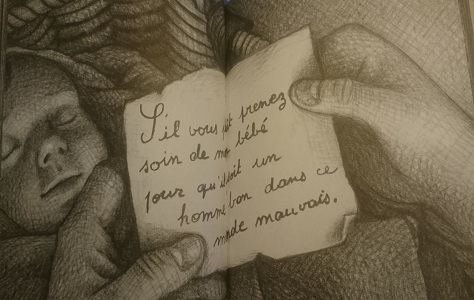 S'il vous plaît prenez
soin de mon bébé
pour qu'il soit un
homme bon dans ce
monde mauvais.